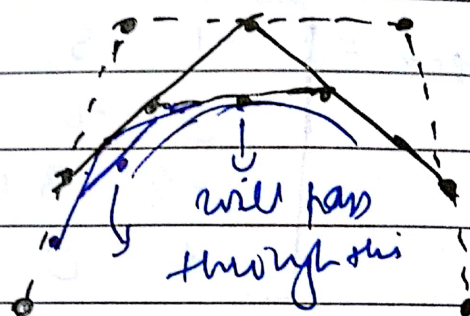 will pass
through this